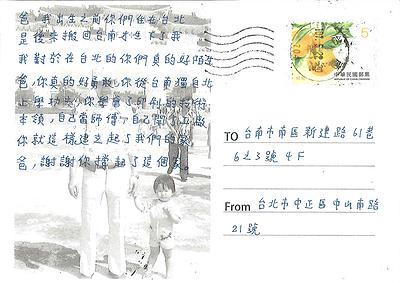 爸,我出生之前你們住在台北
是後來搬回台南才生下了我
我對於在台北的你們真的好陌生
爸,你真的好勇敢,你從台南獨自北
上學功夫,你學會了印刷的技術
本領,自己當師傅,自己開了工廠
你就這樣建立起了我們的家
爸,謝謝你撐起了這個家。
5
中華民國郵票
TO 台南市南區新建路61巷
6之3號 4F
From 台北市中正區中山南路
21號